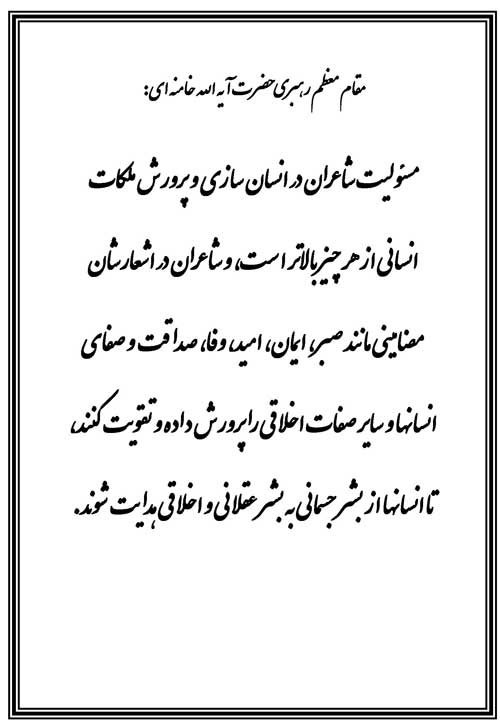 مقام معظم رهبری حضرت آیه الله خامنه ای:
مسئولیت شاعران در انسان سازی و پرورش ملکات
انسانی از هر چیز بالاتر است، و شاعران در اشعارشان
مضامینی مانند صبر، ایمان، امید، وفا، صداقت و صفای
انسانها و سایر صفات اخلاقی را پرورش داده و تقویت کنند،
تا انسانها از بشر جسمانی به بشر عقلانی و اخلاقی هدایت شوند.